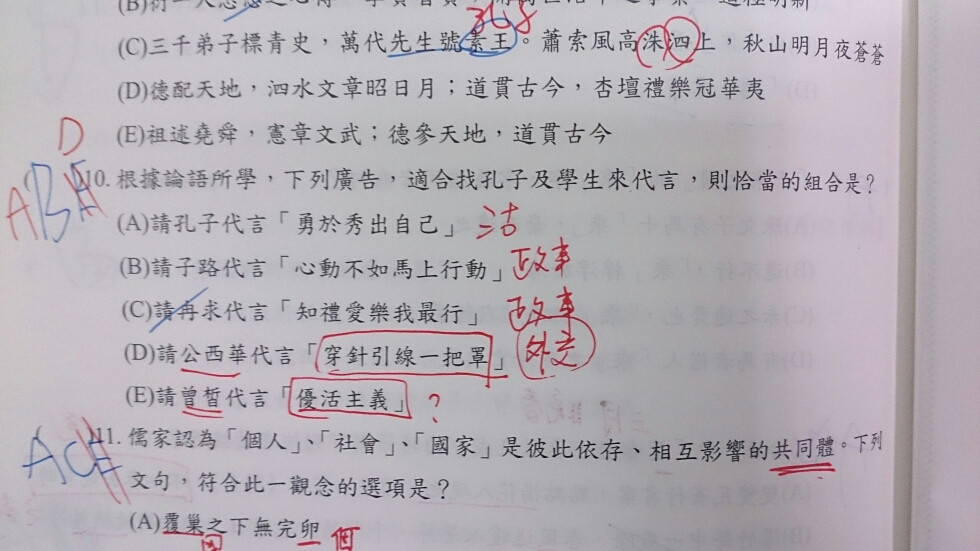 孔子
(C)三千弟子標青史，萬代先生號素王。蕭索風高洙泗上，秋山明月夜蒼蒼
(D)德配天地，泗水文章昭日月；道貫古今，杏壇禮樂冠華夷
(E)祖述堯舜，憲章文武；德參天地，道貫古今
D
ABE
10. 根據論語所學，下列廣告，適合找孔子及學生來代言，則恰當的組合是？
(A)請孔子代言「勇於秀出自己」
(B)請子路代言「心動不如馬上行動」政事
(C)請冉求代言「知禮愛樂我最行」政事
(D)請公西華代言「穿針引線一把罩」外交
(E)請曾晳代言「優活主義」？
ACE
11. 儒家認為「個人」、「社會」、「國家」是彼此依存、相互影響的共同體。下列
文句，符合此一觀念的選項是？
(A)覆巢之下無完卵 個